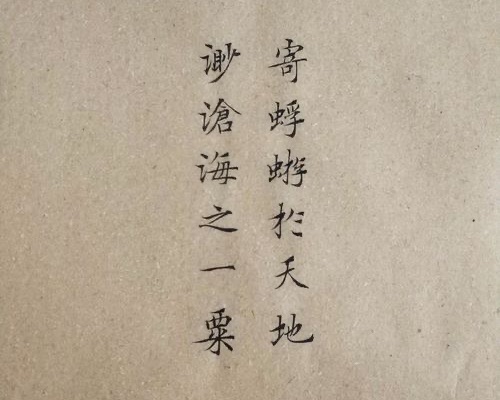 寄蜉蝣於天地
渺滄海之一粟